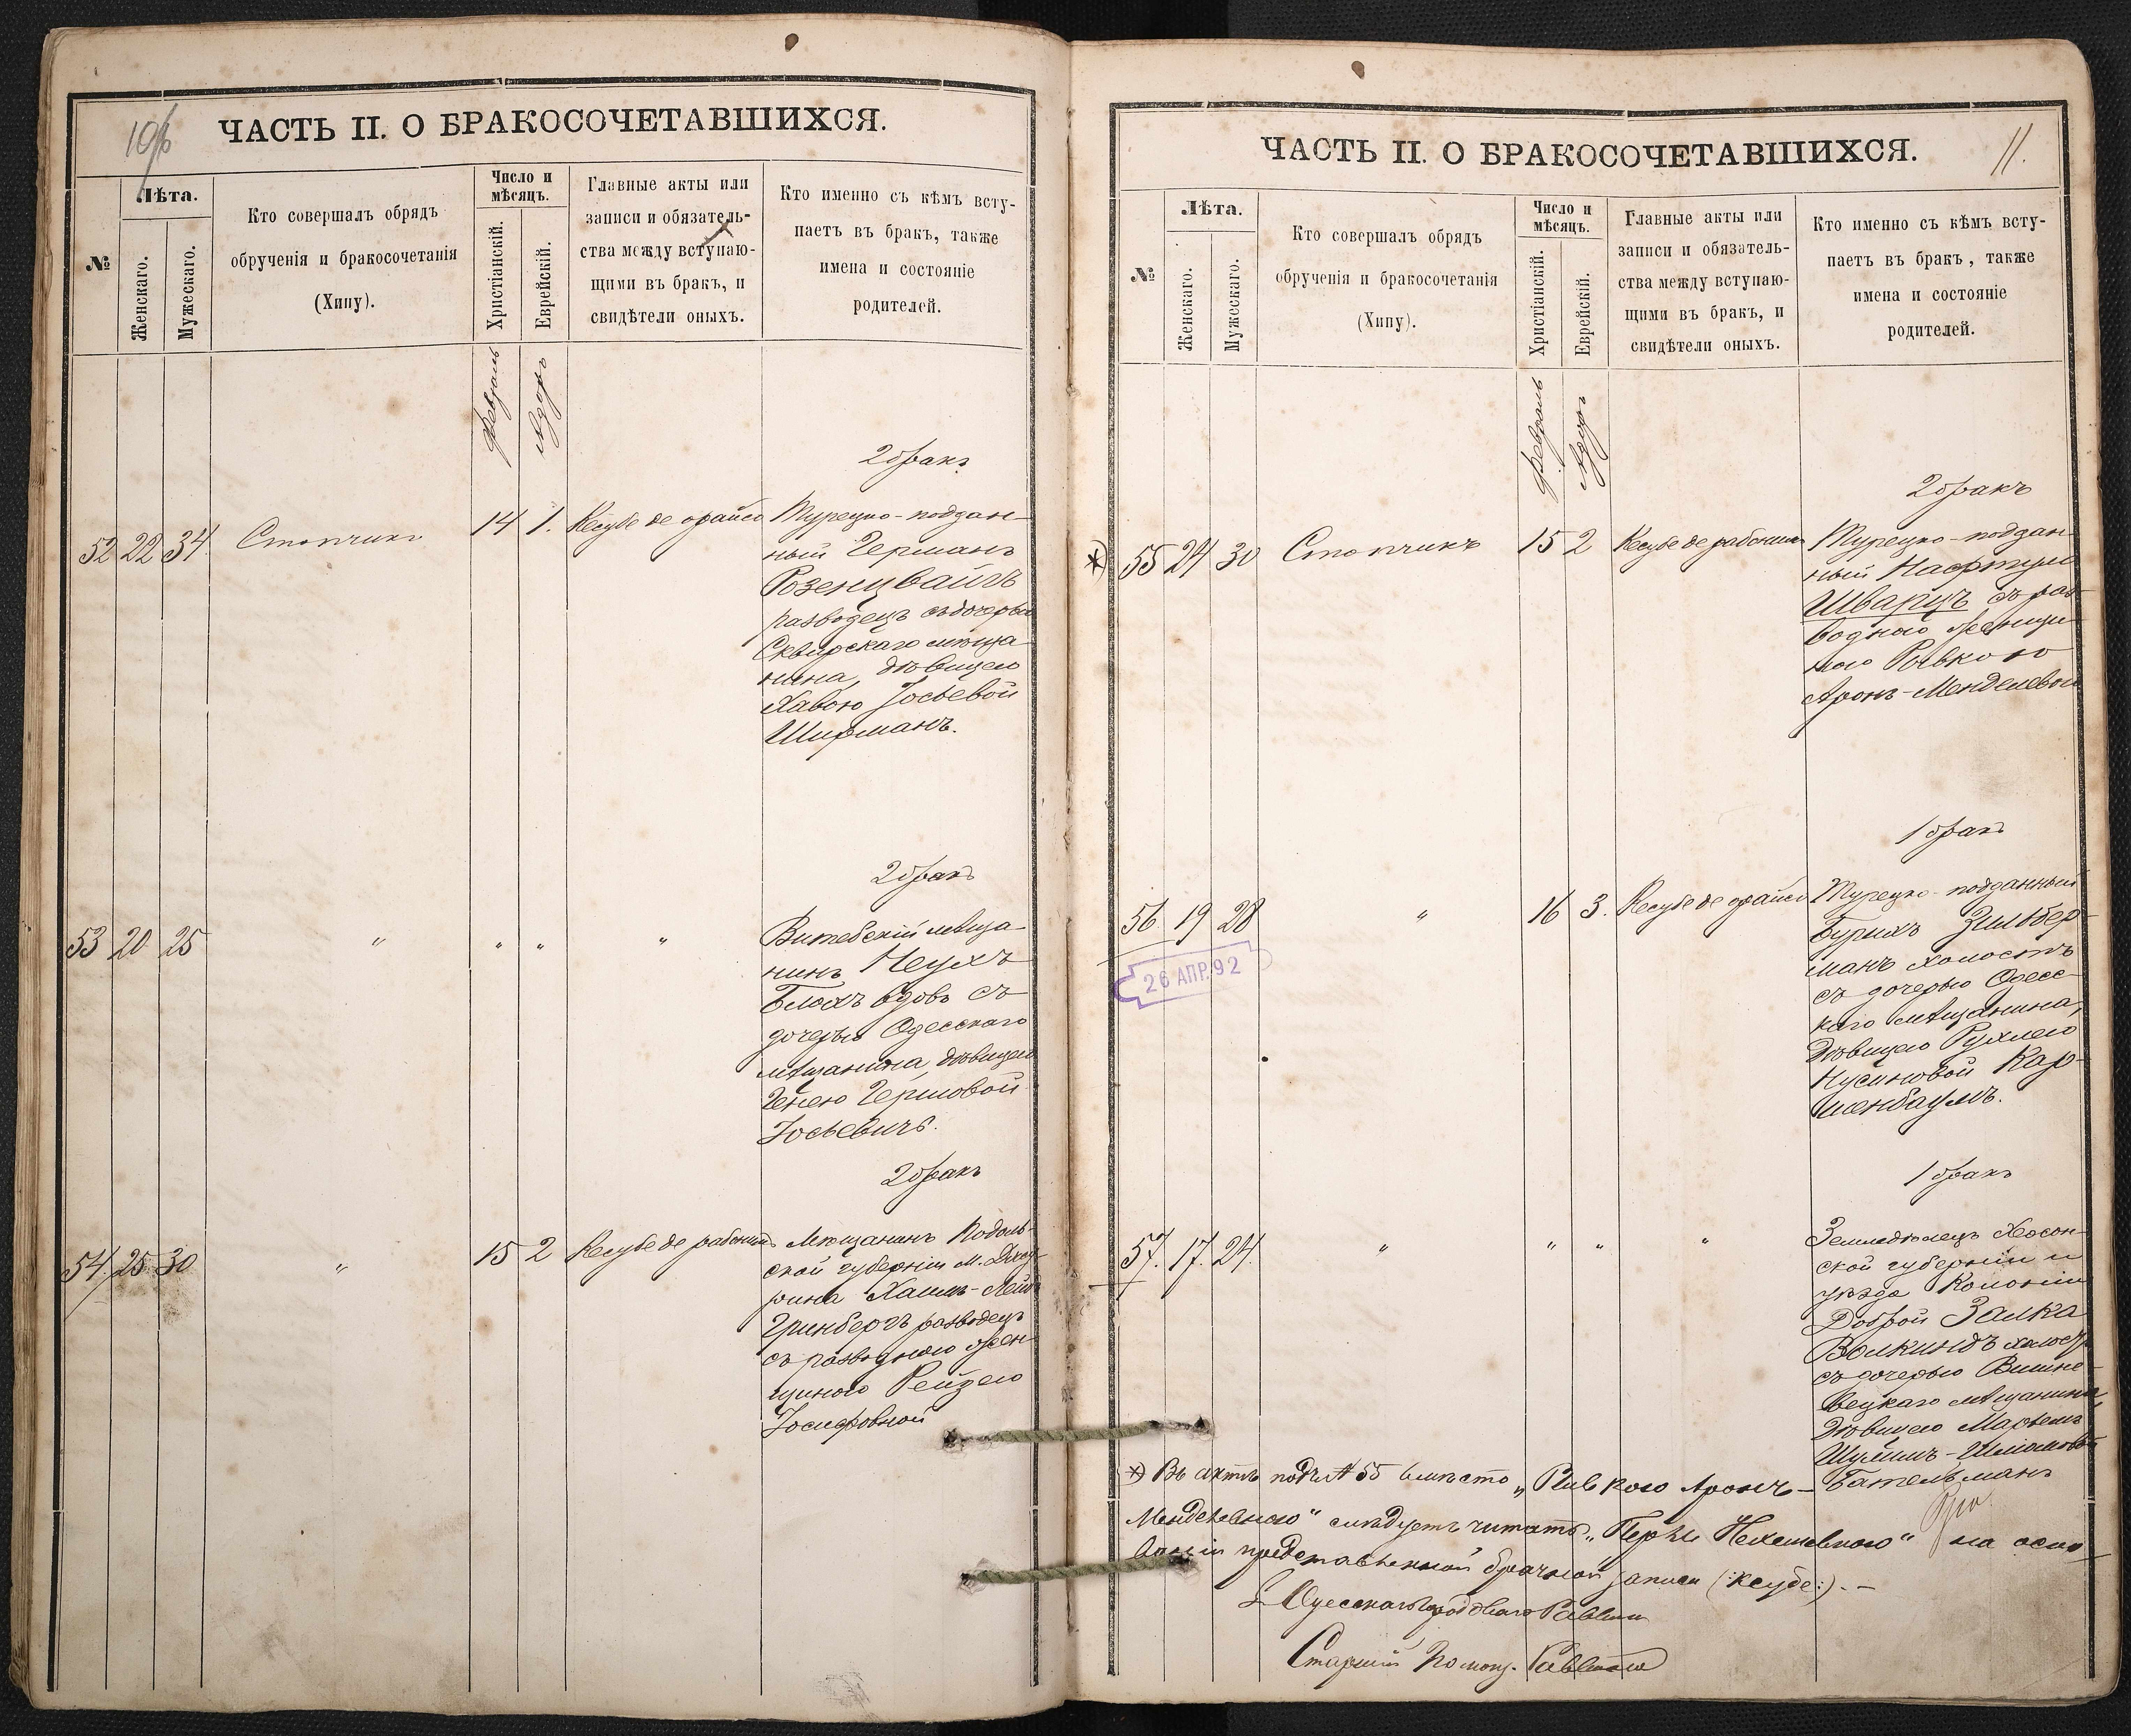 10/b
ЧАСТЬ II. О БРАКОСОЧЕТАВШИХСЯ.
№
Лѣта.
Женскаго.
Мужескаго.
Кто совершалъ обрядъ
обрученія и бракосочетанія
(Хипу).
Число и
мѣсяцъ.
Христіанскій.
Еврейскій.
Главные акты или
записи и обязатель-
ства между вступаю-
щими въ бракъ, и
свидѣтели оныхъ.
Кто именно съ кѣмъ всту-
паетъ въ бракъ, также
имена и состояніе
родителей.
Февраль
Адоръ
2 бракъ
52 22 34 Стопчикъ 14 1. Кесубе де орайсо
Турецко-поддан-
ный Германъ
Розенцвайгъ
разводецъ съ дочерью
Сквирскаго мѣща-
нина, дѣвицею
Хавою Іосьевой
Ширманъ.
2 бракъ
53 20 25 " " " "
Витебскій мѣща-
нинъ Неухъ
Блохъ вдовъ съ
дочерью Одесскаго
мѣщанина, дѣвицею
Генею Гершовой
Іосьевичъ.
2 бракъ
54 25 30 " 15 2 Кесубе де
Мѣщанинъ Подоль-
ской губерніи М.
рина Хаимъ-Лейб
Гринбергъ разводецъ
съ разводною жен-
щиною Рейзею
Іосифовной
ЧАСТЬ II. О БРАКОСОЧЕТАВШИХСЯ.
11.
№
Лѣта.
Женскаго.
Мужескаго.
Кто совершалъ обрядъ
обрученія и бракосочетанія
(Хипу).
Число и
мѣсяцъ.
Христіанскій.
Еврейскій.
Главные акты или
записи и обязатель-
ства между вступаю-
щими въ бракъ, и
свидѣтели оныхъ.
Кто именно съ кѣмъ всту-
паетъ въ бракъ, также
имена и состояніе
родителей.
Февраль
Адоръ
2 бракъ
*) 55 24 30 Стопчикъ 15 2 Кесубе де
Турецко-поддан-
ный Нафтули
Шварцъ съ раз-
водною женщи-
ною Ривкою
Аронъ-Менделевой
1 бракъ
56 19 28 " 16 3. Кесубе де орайсо
26 АПР. 92
Турецко-подданный
Бурихъ Зильбер-
манъ холостъ
съ дочерью Одесс-
каго мѣщанина,
дѣвицею Рухлею
Нусиновой Кар-
шенбаумъ.
1 бракъ
57. 17. 24. " " " "
Земледѣлецъ Херсон-
ской губерніи и
уѣзда Колоніи
Доброй Залка
Волкиндъ холостъ
съ дочерью Вишне-
вецкаго мѣщанина,
дѣвицею Марьемъ
Шулимъ-Шліомовой
Бательманъ
*) Въ актѣ подъ № 55 вмѣсто „Ривкою Аронъ-
Менделевною" слѣдуетъ читать „Перлы Нехемевною" на осно-
ваніи представленной брачной записи (:ксубе:). —
Одесскаго Городоваго Раввина
Старшій Помощ. Раввина